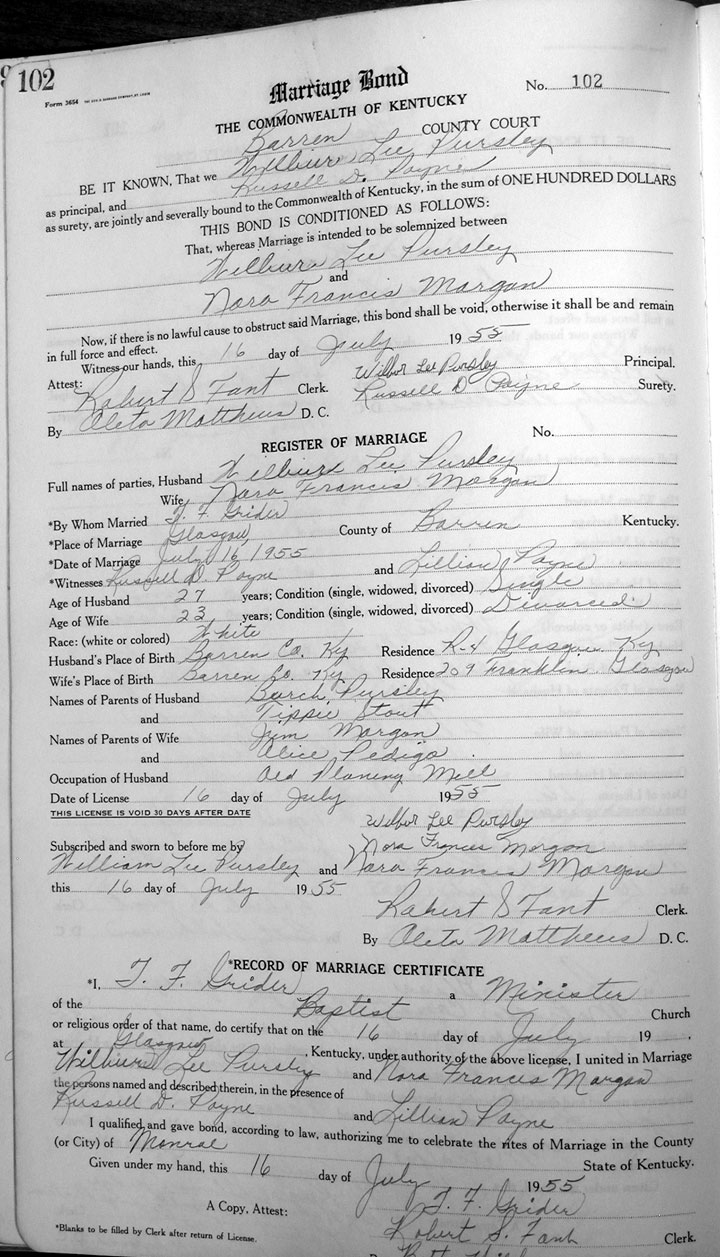 102
Form 3654
Marriage Bond
No. 102
THE COMMONWEALTH OF KENTUCKY
Barren COUNTY COURT
BE IT KNOWN, That we Wilburn Lee Pursley
as principal, and Russell D. Payne
as surety, are jointly and severally bound to the Commonwealth of Kentucky, in the sum of ONE HUNDRED DOLLARS
THIS BOND IS CONDITIONED AS FOLLOWS:
That, whereas Marriage is intended to be solemnized between
Wilburn Lee Pursley
and
Nora Francis Morgan
Now, if there is no lawful cause to obstruct said Marriage, this bond shall be void, otherwise it shall be and remain
in full force and effect.
Witness our hands, this 16 day of July 1955
Attest: Wilbur Lee Pursley Principal.
Robert S Fant Clerk. Russell D Payne Surety.
By Oleta Matthews D. C.
REGISTER OF MARRIAGE No.
Full names of parties, Husband Wilburn Lee Pursley
Wife Nora Francis Morgan
*By Whom Married T. F Grider
*Place of Marriage Glasgow County of Barren Kentucky.
*Date of Marriage July 16, 1955
*Witnesses Russell D. Payne and Lillian Payne
Age of Husband 27 years; Condition (single, widowed, divorced) Single
Age of Wife 23 years; Condition (single, widowed, divorced) Divorced
Race: (white or colored) White
Husband's Place of Birth Barren Co. Ky Residence R-4 Glasgow Ky
Wife's Place of Birth Barren Co. Ky Residence 209 Franklin Glasgow
Names of Parents of Husband Burch Pursley
and Tippie Stout
Names of Parents of Wife Jim Morgan
and Alice Pedigo
Occupation of Husband Old Planing Mill
Date of License 16 day of July 1955
THIS LICENSE IS VOID 30 DAYS AFTER DATE
Wilbur Lee Pursley
Subscribed and sworn to before me by Nora Frances Morgan
William Lee Pursley and Nora Francis Morgan
this 16 day of July 1955
Robert S Fant Clerk.
By Oleta Matthews D. C.
*RECORD OF MARRIAGE CERTIFICATE
*I, T. F. Grider a Minister
of the Baptist Church
or religious order of that name, do certify that on the 16 day of July 19 ,
at Glasgow , Kentucky, under authority of the above license, I united in Marriage
Wilburn Lee Pursley and Nora Francis Morgan
the persons named and described therein, in the presence of
Russell D. Payne and Lillian Payne
I qualified and gave bond, according to law, authorizing me to celebrate the rites of Marriage in the County
(or City) of Monroe State of Kentucky.
Given under my hand, this 16 day of July 1955
T. F. Grider
A Copy, Attest: Robert S. Fant Clerk.
*Blanks to be filled by Clerk after return of License.